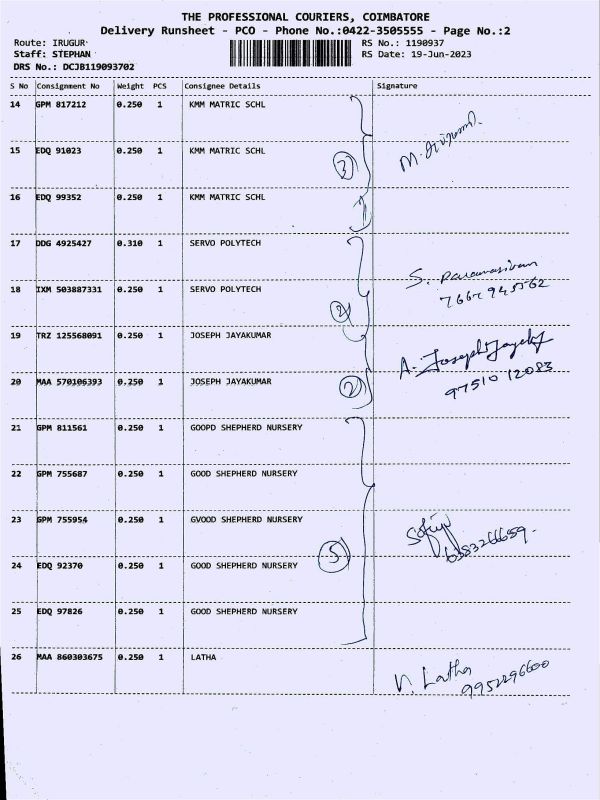 THE PROFESSIONAL COURIERS, COIMBATORE
Delivery Runsheet - PCO - Phone No.:0422-3505555 - Page No.:2
Route: IRUGUR RS No.: 1190937
Staff: STEPHAN RS Date: 19-Jun-2023
DRS No.: DCJB119093702
S No Consignment No Weight PCS Consignee Details Signature
14 GPM 817212 0.250 1 KMM MATRIC SCHL
15 EDQ 91023 0.250 1 KMM MATRIC SCHL 3
16 EDQ 99352 0.250 1 KMM MATRIC SCHL
17 DDG 4925427 0.310 1 SERVO POLYTECH
S. Paramasivam
18 IXM 503887331 0.250 1 SERVO POLYTECH 2
19 TRZ 125568091 0.250 1 JOSEPH JAYAKUMAR
A. Joseph
20 MAA 570106393 0.250 1 JOSEPH JAYAKUMAR 2 97510 12083
21 GPM 811561 0.250 1 GOOPD SHEPHERD NURSERY
22 GPM 755687 0.250 1 GOOD SHEPHERD NURSERY
23 GPM 755954 0.250 1 GVOOD SHEPHERD NURSERY
24 EDQ 92370 0.250 1 GOOD SHEPHERD NURSERY 5
25 EDQ 97826 0.250 1 GOOD SHEPHERD NURSERY
26 MAA 860303675 0.250 1 LATHA
V. Latha
9952296600